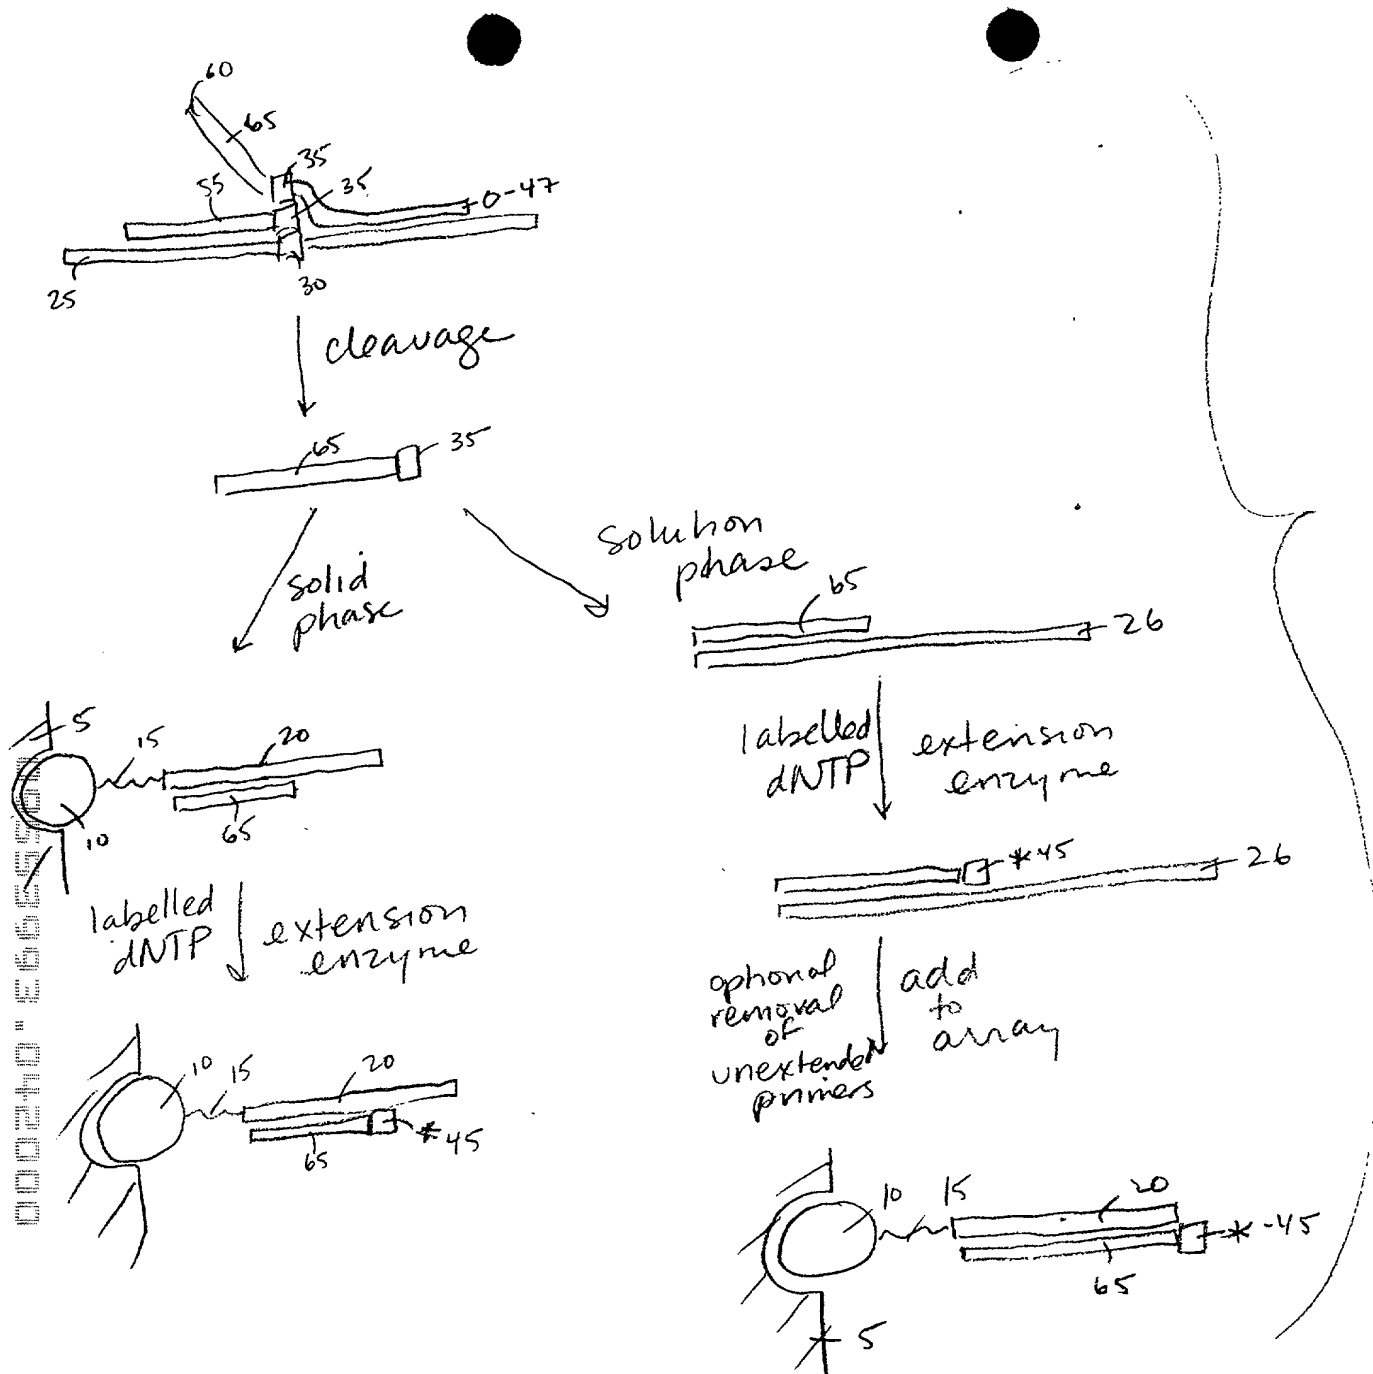 60
65
35
55
35
0-47
25
30
cleavage
65
35
solid
phase
solution
phase
65
26
5
15
20
10
65
labelled
dNTP
extension
enzyme
labelled
dNTP
extension
enzyme
*45
26
optional
removal
of
unextended
primers
add
to
array
10
15
20
65
*45
10
15
20
*-45
65
5